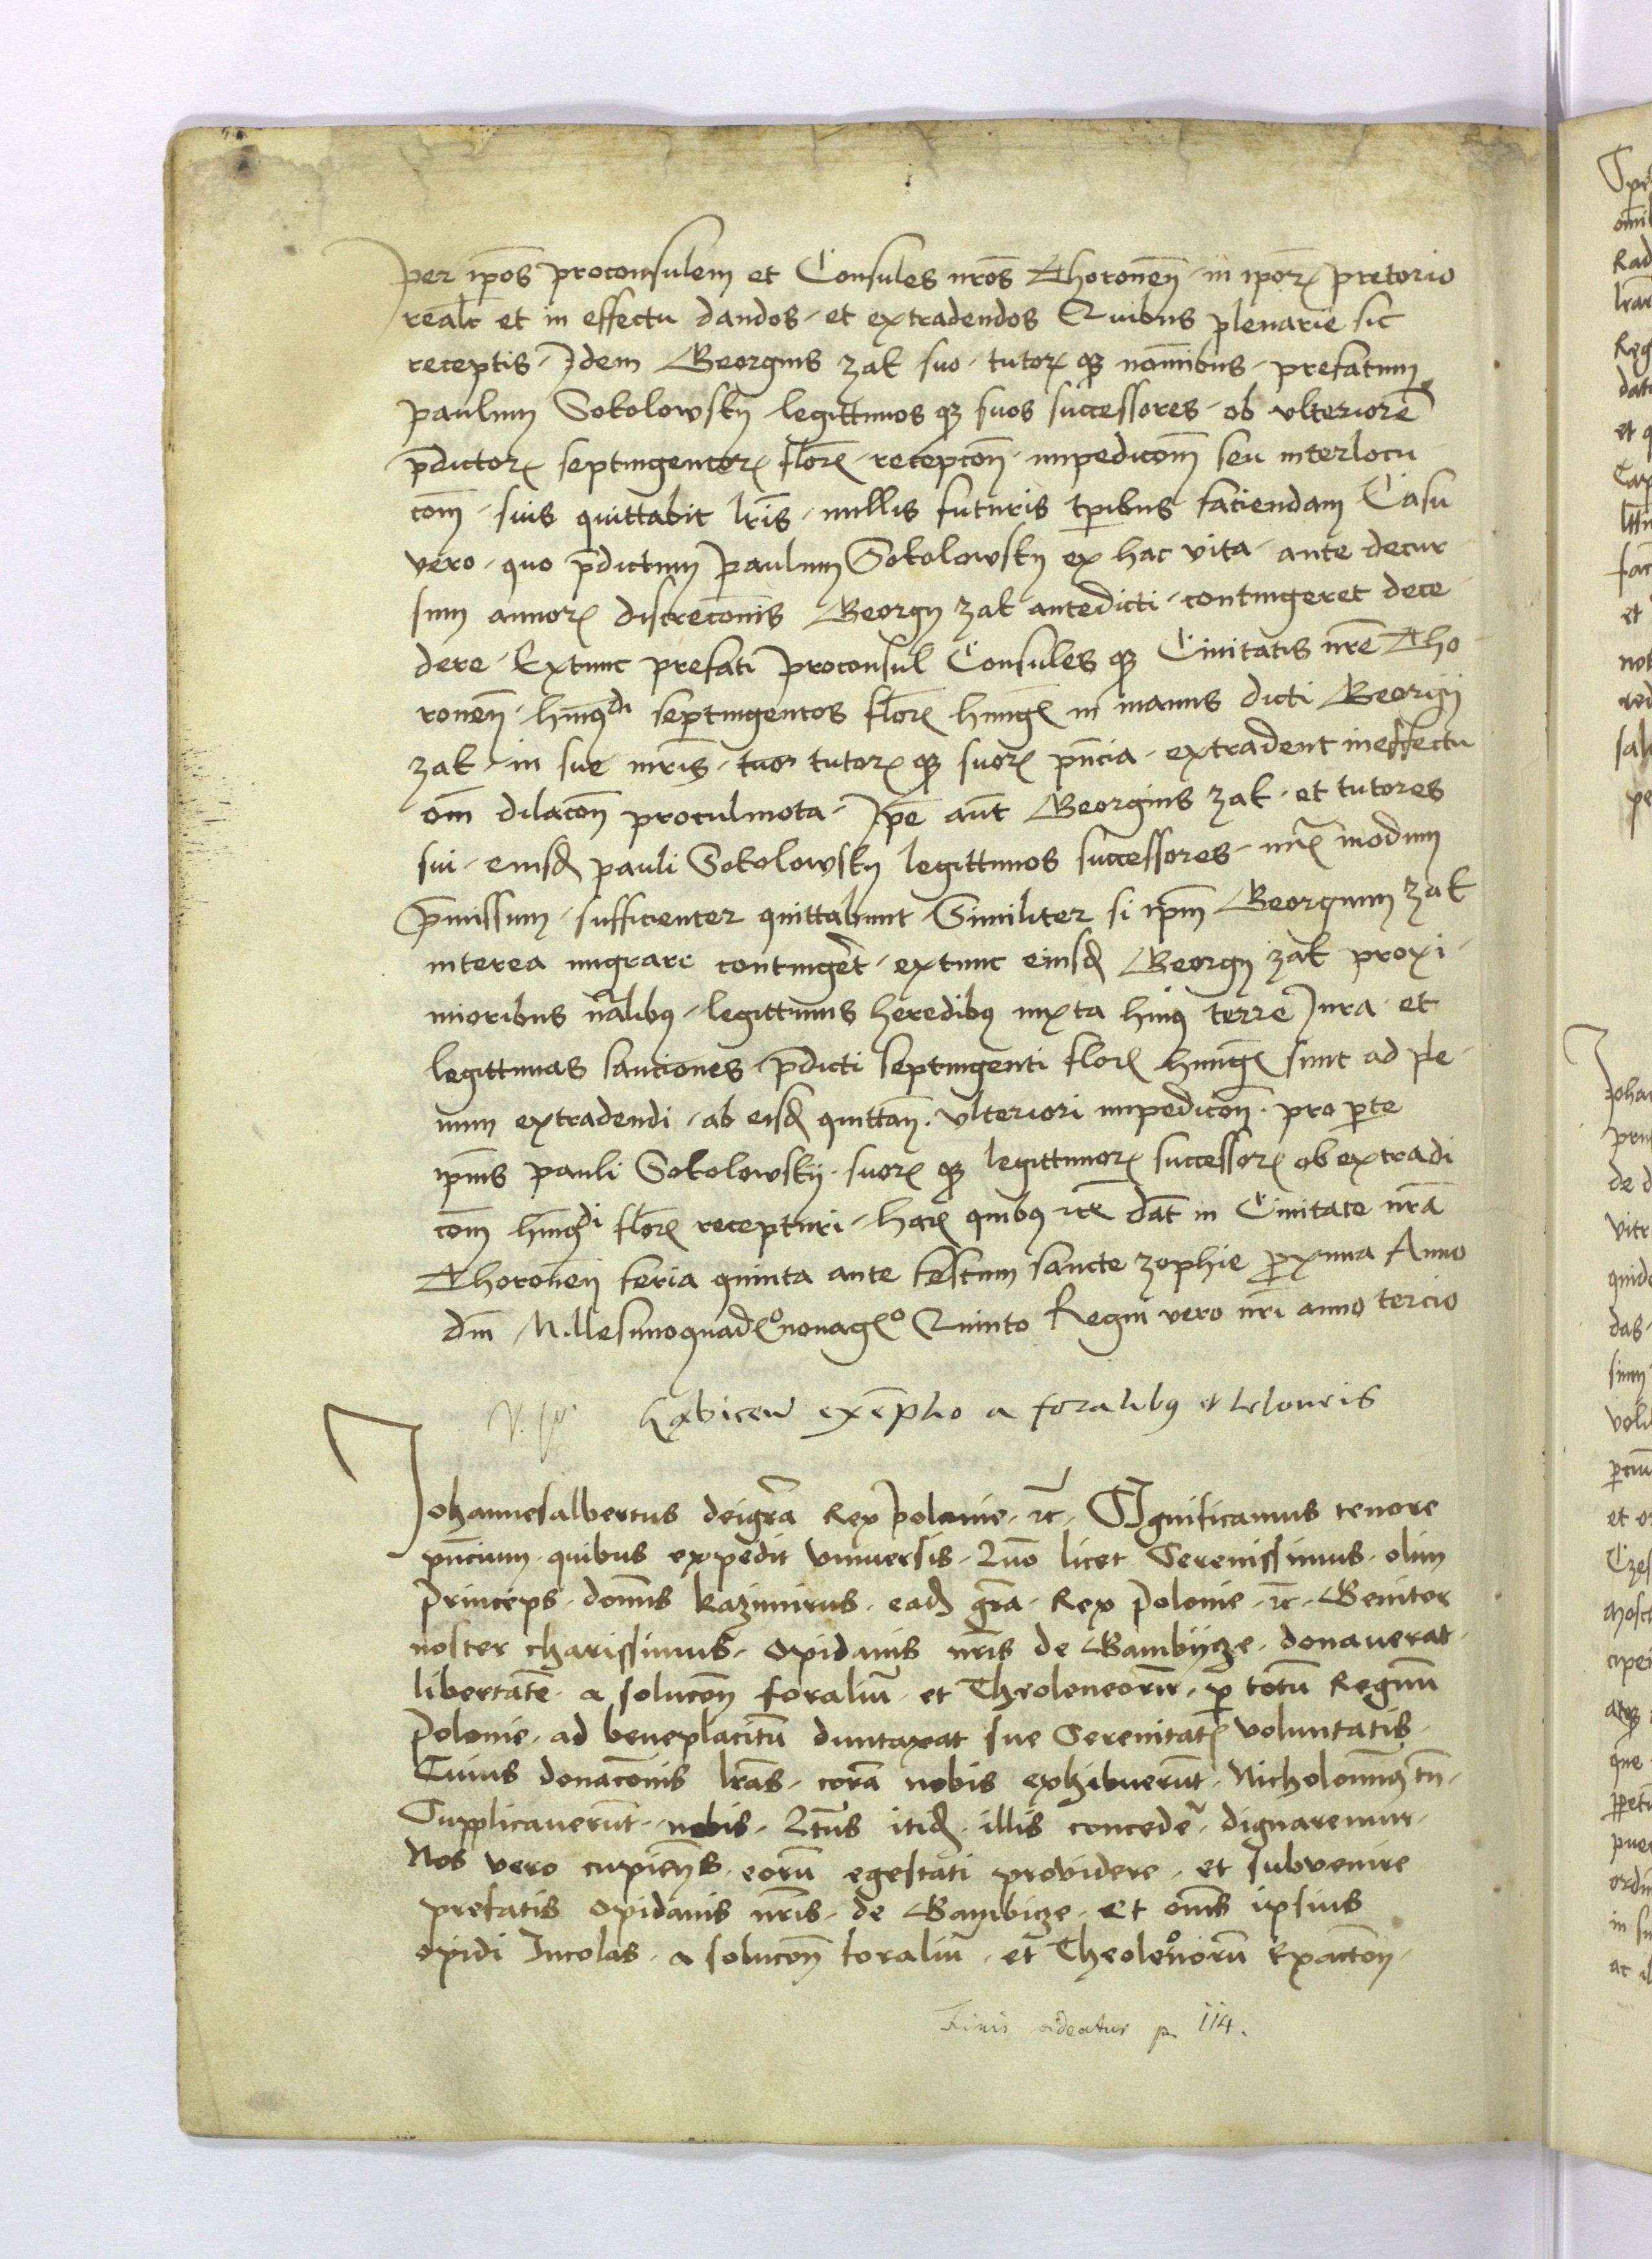 per ip̄os proconsulem et Consules nr̄os Thoronen̄ in ipor̄ pretorio
realr̄ et in effectu dandos et extradendos Quibus plenarie sic
receptis Idem Georgius zak suo tutorꝝ qꝫ nominibus prefatum
paulum Sokolowsky legittimos qꝫ suos successores ob vlteriorē
p̄dictorꝝ septingentorꝝ florꝝ recepcōn impedicōm seu interlocu
cōm suis quittabit lr̄is nullis futuris tp̄ibus faciendam Casu
vero quo p̄dictum paulum Sokolowsky ex hac vita ante decur
sum annorꝝ discrecōnis Georgy zak antedicti contingeret dece
dere Extunc prefati proconsul Consules qꝫ Ciuitatis nr̄e Tho
ronen̄ hmōi septingentos florꝝ hungꝝ in manus dicti Georgij
zak in sue mr̄is tuor tutorꝝ qꝫ suorꝝ pn̄cia extradent in effectu
om̄ dilacōn proculmota Ip̄e aūt Georgius zak et tutores
sui eiusdꝫ pauli Sokolowsky legittimos successores iuxꝫ modum
p̄missum sufficienter quittabunt Similiter si ip̄m Georgium zak
interea migrare contingēt extunc eiusdꝫ Georgy zak proxi
mioribus nālibꝰ legittimis heredibꝰ iuxta huiꝰ terre Jura et
legittimas sanciones p̄dicti septingenti florꝝ hungꝝ sint ad ple
num extradendi ab eisdꝫ quittān vlteriori impedicōn pro pte
ipius pauli Sokolowskij suorꝝ qꝫ legittimorꝝ successorꝝ ob extradi
cōm hmōi florꝝ recepturi harꝝ quibꝰ rc̄ dat̄ in Ciuitate nr̄a
Thoronen̄ feria quinta ante festum sancte zophie pxima Anno
dm̄ Millesimoquadrꝫº nonagꝫº Quinto Regni vero nr̄i anno tercio
Gabicen exēptio a foralibꝰ et teloneis
Johannesalbertus deigrā Rex Polonie rc̄ Significamus tenore
pn̄cium quibus expedit vniuersis Quō licet Serenissimus olim
Princeps domnūs kazimirus eadꝫ grā Rex Polonie rc̄ Genitor
noster charissimus opidanis nr̄is de Gambijcze donauerat
libertatē a solucōn foraliū et Theoloneorū p totū Regnū
Polonie ad beneplacitū duntaxat sue Serenitatꝭ voluntatis
Cuius donacōnis lrās corā nobis exhibuerūt Nicholominꝰ tn̄
Supplicauerūt nobis Qtn̄s itidꝫ illis concedē dignaremur
Nos vero cupien̄s eorū egestati providere et subvenire
prefatis opidanis nr̄is de Gambicze Et om̄s ipsius
opidi Incolas a solucōn foraliū et Theolenorū Exactōn
Finis videatur p. 114.